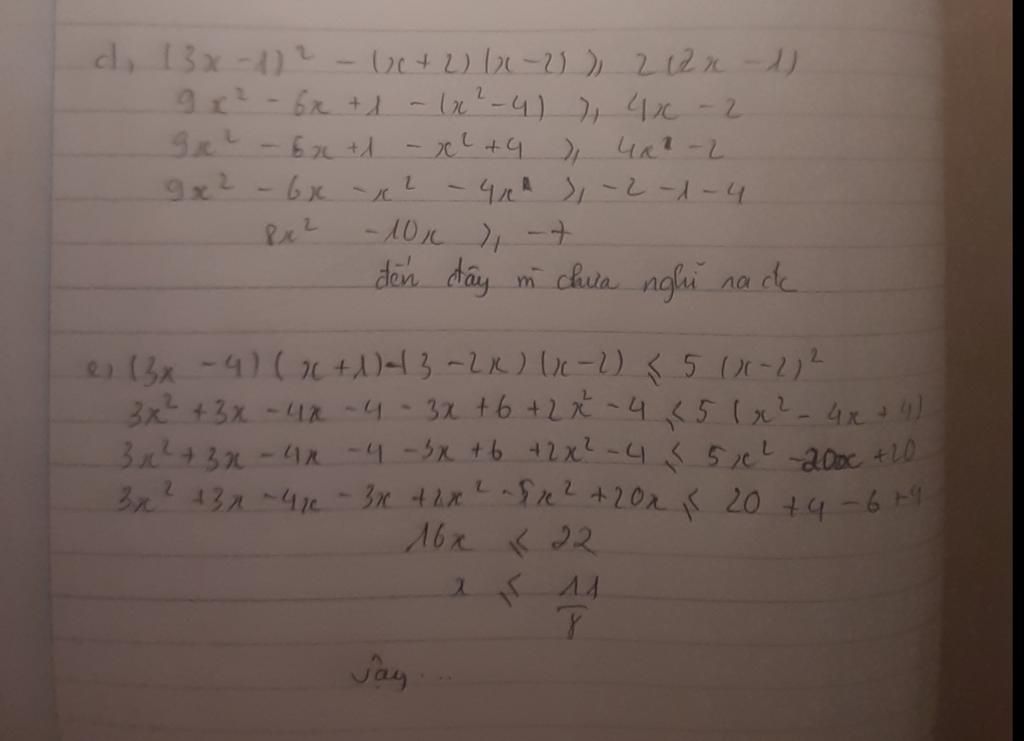 d, (3x - 1)² - (x + 2)(x - 2) ≥ 2(2x - 1)
9x² - 6x + 1 - (x² - 4) ≥ 4x - 2
9x² - 6x + 1 - x² + 4 ≥ 4x - 2
9x² - 6x - x² - 4x ≥ -2 - 1 - 4
8x² - 10x ≥ -7
đến đây m chưa nghĩ ra đc
e, (3x - 4)(x + 1) - (3 - 2x)(x - 2) ≤ 5 (x - 2)²
3x² + 3x - 4x - 4 - 3x + 6 + 2x² - 4 ≤ 5 (x² - 4x + 4)
3x² + 3x - 4x - 4 - 3x + 6 + 2x² - 4 ≤ 5x² - 20x + 20
3x² + 3x - 4x - 3x + 2x² - 5x² + 20x ≤ 20 + 4 - 6 + 4
16x ≤ 22
x ≤ 11/8
Vậy ...